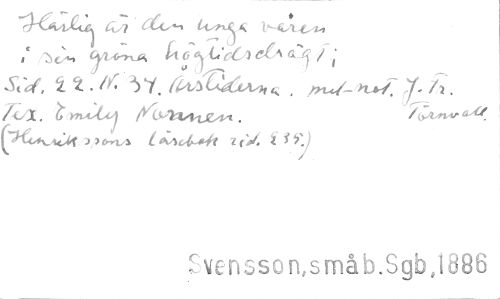 Härlig är den unga våren
i sin gröna högtidsdrägt;
Sid. 22. N. 34. Årstiderna. mel-not. J. Tr.
Tex. Emily Nonnen. Törnvall.
(Henrikssons Läsebok sid. 235.)
Svensson, småb. Sgb, 1886